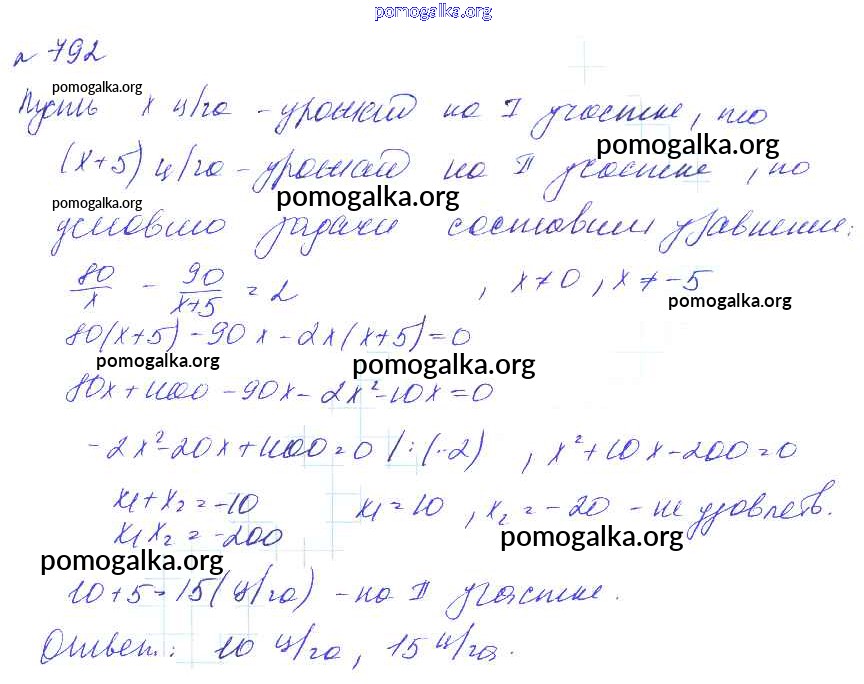 pomogalka.org
№ 792
pomogalka.org
Пусть x ц/га - урожай на I участке, то
pomogalka.org
(x+5) ц/га - урожай на II участке, по
pomogalka.org
pomogalka.org
условию задачи составим уравнение:
80/x - 90/(x+5) = 2, x≠0, x≠-5
pomogalka.org
80(x+5) - 90x - 2x(x+5) = 0
pomogalka.org
pomogalka.org
80x + 400 - 90x - 2x² - 10x = 0
-2x² - 20x + 400 = 0 |:(-2), x² + 10x - 200 = 0
x₁ + x₂ = -10
x₁x₂ = -200
x₁ = 10, x₂ = -20 - не удовлетв.
pomogalka.org
pomogalka.org
10 + 5 = 15 (ц/га) - на II участке.
Ответ: 10 ц/га, 15 ц/га.